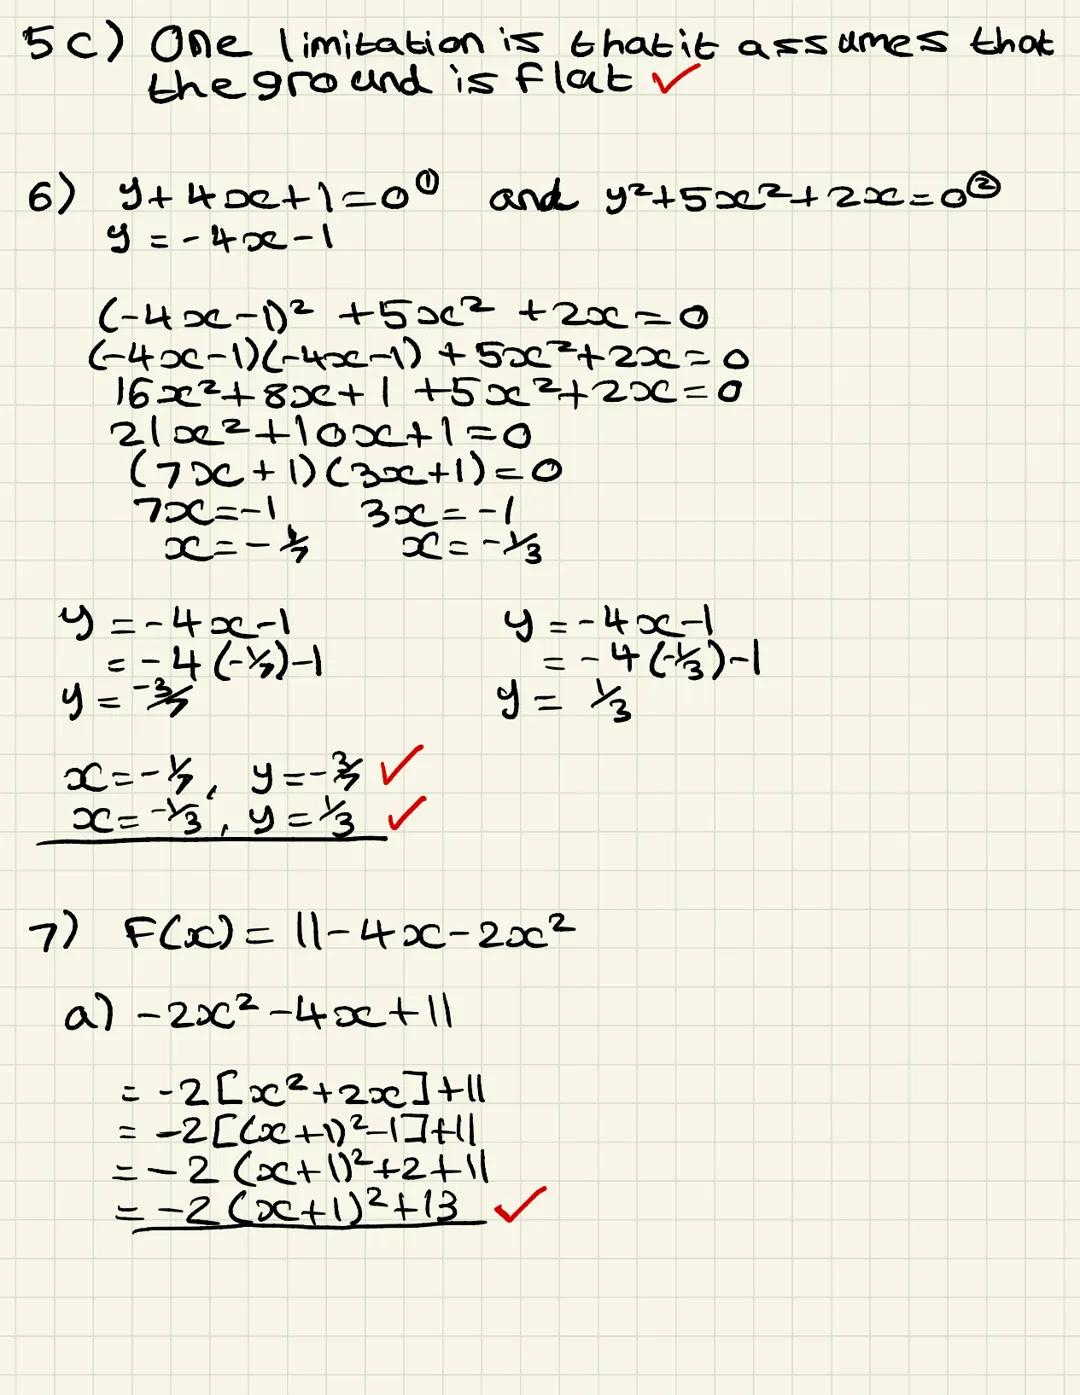 5c) One limitation is that it assumes that
the ground is flat ✓
6) y+4x+1=0① and y²+5x²+2x=0②
y=-4x-1
(-4x-1)²+5x²+2x=0
(-4x-1)(-4x-1)+5x²+2x=0
16x²+8x+1+5x²+2x=0
21x²+10x+1=0
(7x+1)(3x+1)=0
7x=-1 3x=-1
x=-1/7 x=-1/3
y=-4x-1 y=-4x-1
=-4(-1/7)-1 =-4(-1/3)-1
y=-3/7 y=1/3
x=-1/7, y=-3/7 ✓
x=-1/3, y=1/3 ✓
7) F(x)=11-4x-2x²
a) -2x²-4x+11
=-2[x²+2x]+11
=-2[(x+1)²-1]+11
=-2(x+1)²+2+11
=-2(x+1)²+13 ✓